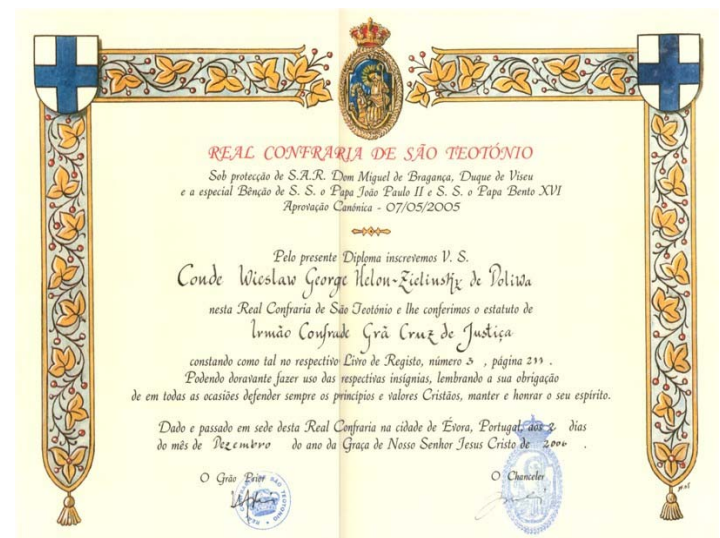 REAL CONFRARIA DE SÃO TEOTÓNIO
Sob protecção de S.A.R. Dom Miguel de Bragança, Duque de Viseu
e a especial Bênção de S. S. o Papa João Paulo II e S. S. o Papa Bento XVI
Aprovação Canónica - 07/05/2005
Pelo presente Diploma inscrevemos V. S.
Conde Wieslaw George Helon-Zielinsky de Poliwa
nesta Real Confraria de São Teotónio e lhe conferimos o estatuto de
Irmão Confrade Grã Cruz de Justiça
constando como tal no respectivo Livro de Registo, número 3 , página .
Podendo doravante fazer uso das respectivas insígnias, lembrando a sua obrigação
de em todas as ocasiões defender sempre os princípios e valores Cristãos, manter e honrar o seu espírito.
Dado e passado em sede desta Real Confraria na cidade de Évora, Portugal, aos 2 dias
do mês de Dezembro do ano da Graça de Nosso Senhor Jesus Cristo de 2006 .
O Grão Prior
O Chanceler